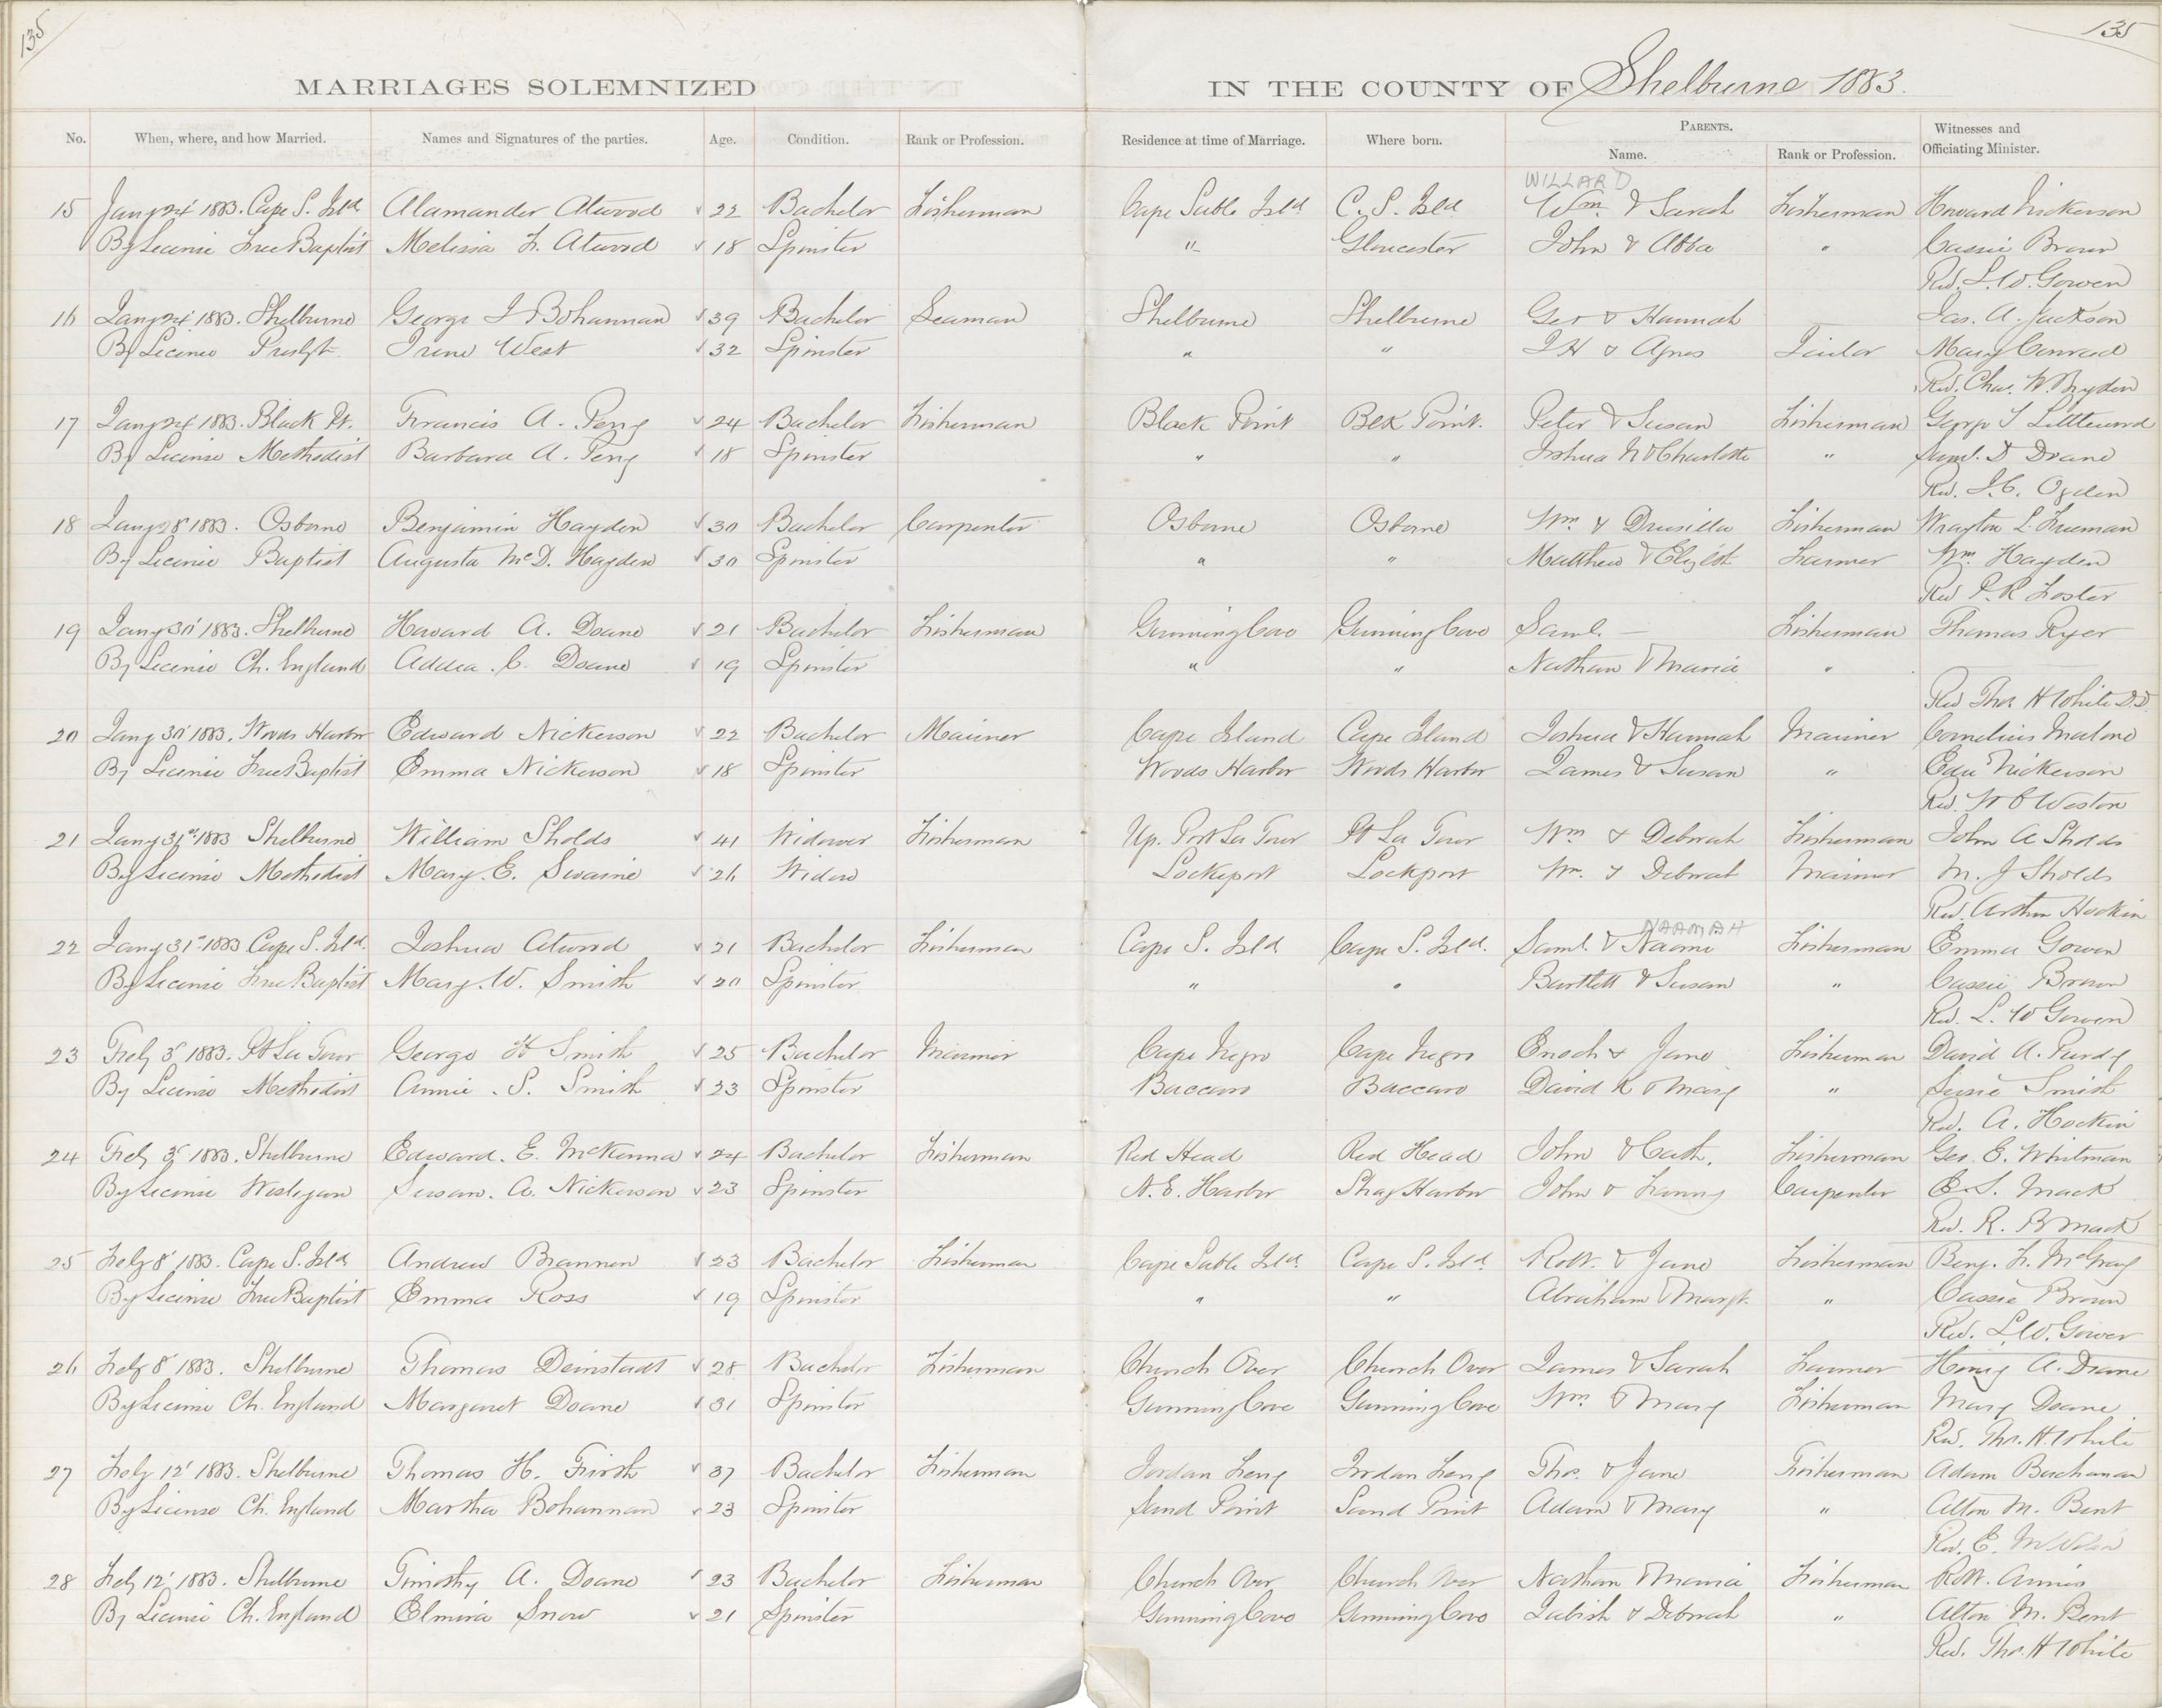 135
135
MARRIAGES SOLEMNIZED IN THE COUNTY OF Shelburne 1883.
No. When, where, and how Married. Names and Signatures of the parties. Age. Condition. Rank or Profession. Residence at time of Marriage. Where born. PARENTS. Name. Rank or Profession. Witnesses and Officiating Minister.
WILLARD
15 Jany 24' 1883. Cape S. Isld. Alamander Atwood 22 Bachelor Fisherman Cape Sable Isld C. S. Isld Wm. & Sarah Fisherman Howard Nickerson
By License Free Baptist Melissa F. Atwood 18 Spinster " Gloucester John & Abba " Cassie Brown
Rev. L. W. Gowen
16 Jany 24' 1883. Shelburne George I Bohannan 39 Bachelor Seaman Shelburne Shelburne Geo & Hannah Jas. A. Jackson
By License Presbyt. Irene West 32 Spinster " " J H & Agnes Tailor Mary Conrad
Rev. Chas. W. Bryden
17 Jany 24 1883. Black Pt. Francis A. Perry 24 Bachelor Fisherman Black Point Blk Point. Peter & Susan Fisherman George S Littlewood
By License Methodist Barbara A. Perry 18 Spinster " " Joshua N & Charlotte " Saml. D Doane
Rev. J. C. Ogden
18 Jany 28' 1883. Osborne Benjamin Hayden 30 Bachelor Carpenter Osborne Osborne Wm & Drusilla Fisherman Wrayton L. Freeman
By License Baptist Augusta McD. Hayden 30 Spinster " " Matthew & Elizbt Farmer Wm. Hayden
Rev P. R. Foster
19 Jany 30' 1883. Shelburne Howard A. Doane 21 Bachelor Fisherman Gunning Cove Gunning Cove Saml. — Fisherman Thomas Ryer
By License Ch. England Addea. C. Doane 19 Spinster " " Nathan & Maria "
Rev Thos H White D.D.
20 Jany 30' 1883. Woods Harbor Edward Nickerson 22 Bachelor Mariner Cape Island Cape Island Joshua & Hannah Mariner Cornelius Malone
By License Free Baptist Emma Nickerson 18 Spinster Woods Harbor Woods Harbor James & Susan " Edu Nickerson
Rev. W C Weston
21 Jany 31st 1883 Shelburne William Sholds 41 Widower Fisherman Up. Port La Tour Pt La Tour Wm & Deborah Fisherman John A Sholds
By License Methodist Mary. E. Swaine 26 Widow Lockeport Lockport Wm. & Deborah Mariner M. J Sholds
Rev. Arthur Hockin
NAAMAH
22 Jany 31st 1883 Cape S. Isld. Joshua Atwood 21 Bachelor Fisherman Cape S. Isld Cape S. Isld. Saml. & Naomi Fisherman Emma Gowen
By License Free Baptist Mary. W. Smith 20 Spinster " " Bartlett & Susan " Cassie Brown
Rev. L. W Gowen
23 Feby 3' 1883. Pt La Tour George H Smith 25 Bachelor Mariner Cape Negro Cape Negro Enoch & Jane Fisherman David A. Purdy
By License Methodist Annie. S. Smith 23 Spinster Baccaro Baccaro David K & Mary " Susie Smith
Rev. A. Hockin
24 Feby 3' 1883. Shelburne Edward. E. McKenna 24 Bachelor Fisherman Red Head Red Head John & Cath. Fisherman Geo. E. Whitman
By License Wesleyan Susan. A. Nickerson 23 Spinster N. E. Harbor Shag Harbor John & Fanny Carpenter E. S. Mack
Rev. R. B Mack
25 Feby 8' 1883. Cape S. Isld Andrew Brannen 23 Bachelor Fisherman Cape Sable Isld. Cape S. Isld. Robt. & Jane Fisherman Benj. F. McGray
By License Free Baptist Emma Ross 19 Spinster " " Abraham & Margt. " Cassie Brown
Rev. L. W. Gowen
26 Feby 8' 1883. Shelburne Thomas Deinstadt 28 Bachelor Fisherman Church Over Church Over James & Sarah Farmer Henry A. Doane
By License Ch. England Margaret Doane 31 Spinster Gunning Cove Gunning Cove Wm. & Mary Fisherman Mary Doane
Rev. Thos. H. White
27 Feby 12' 1883. Shelburne Thomas H. Firth 37 Bachelor Fisherman Jordan Ferry Jordan Ferry Thos. & Jane Fisherman Adam Buchanan
By License Ch. England Martha Bohannan 23 Spinster Sand Point Sand Point Adam & Mary " Alton M. Bent
Rev. E.
28 Feby 12' 1883. Shelburne Timothy A. Doane 23 Bachelor Fisherman Church Over Church Over Nathan & Maria Fisherman Robt.
By License Ch. England Elmira Snow 21 Spinster Gunning Cove Gunning Cove & Deborah " Alton M. Bent
Rev. Thos. H White